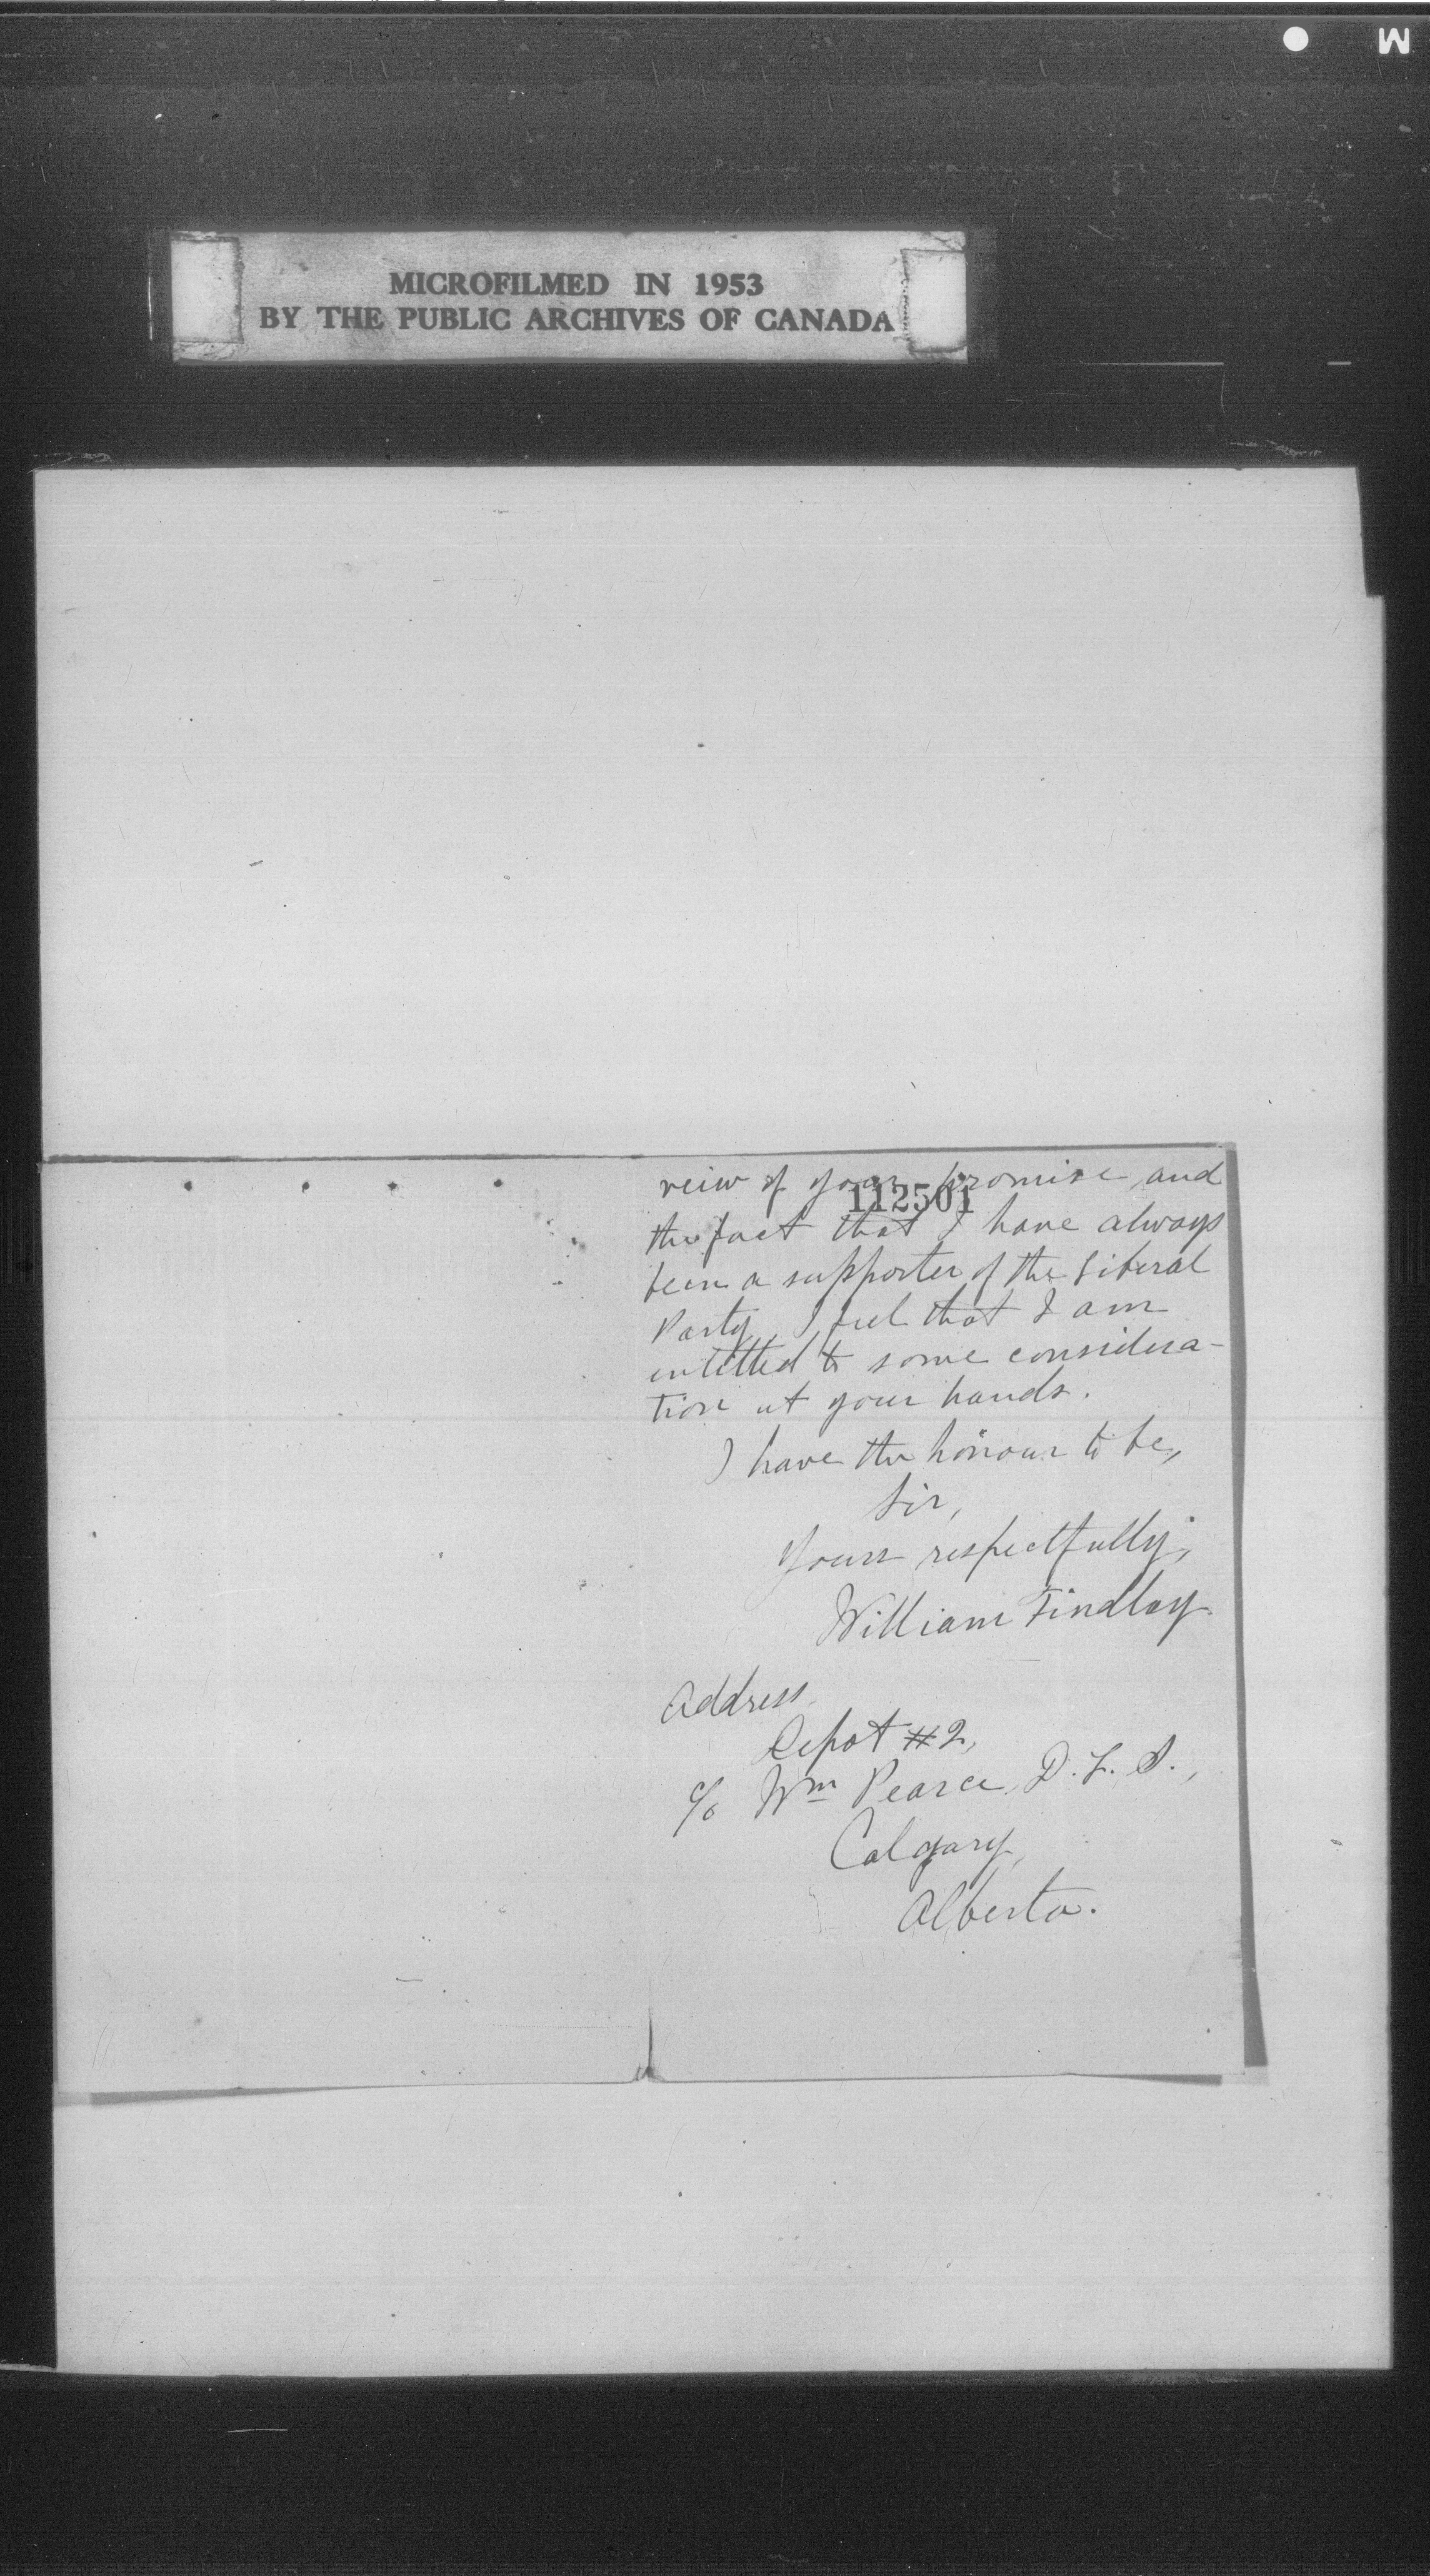 M
MICROFILMED IN 1953
BY THE PUBLIC ARCHIVES OF CANADA
veiw of your promise and
112501
the fact that I have always
been a supporter of the Liberal
Party, I feel that I am
entitled to some considera-
tion at your hands.
I have the honour to be,
Sir,
Yours respectfully,
William Findlay.
Address.
Depot #2,
c/o Wm Pearce, D. L. S.,
Calgary,
Alberta.